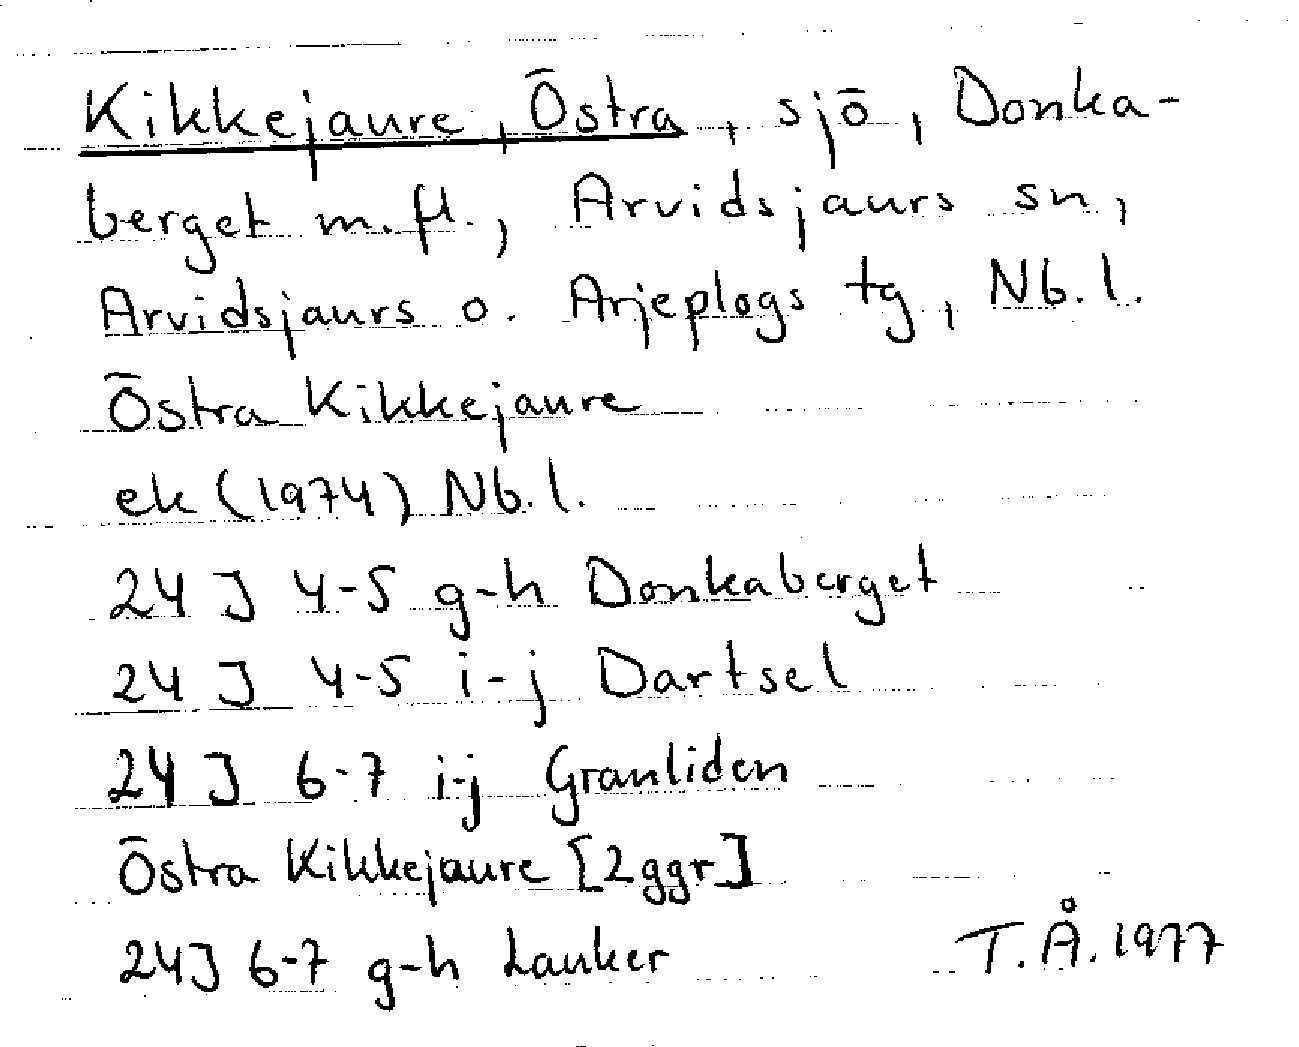 Kikkejaure, Östra, sjö, Donka-
berget m.fl., Arvidsjaurs sn,
Arvidsjaurs o. Arjeplogs tg, Nb.l.
Östra Kikkejaure
ek (1974) Nb.l.
24 J 4-5 g-h Donkaberget
24 J 4-5 i-j Dartsel
24 J 6-7 i-j Granliden
Östra Kikkejaure [2ggr]
24J 6-7 g-h Lauker
T.Å. 1977